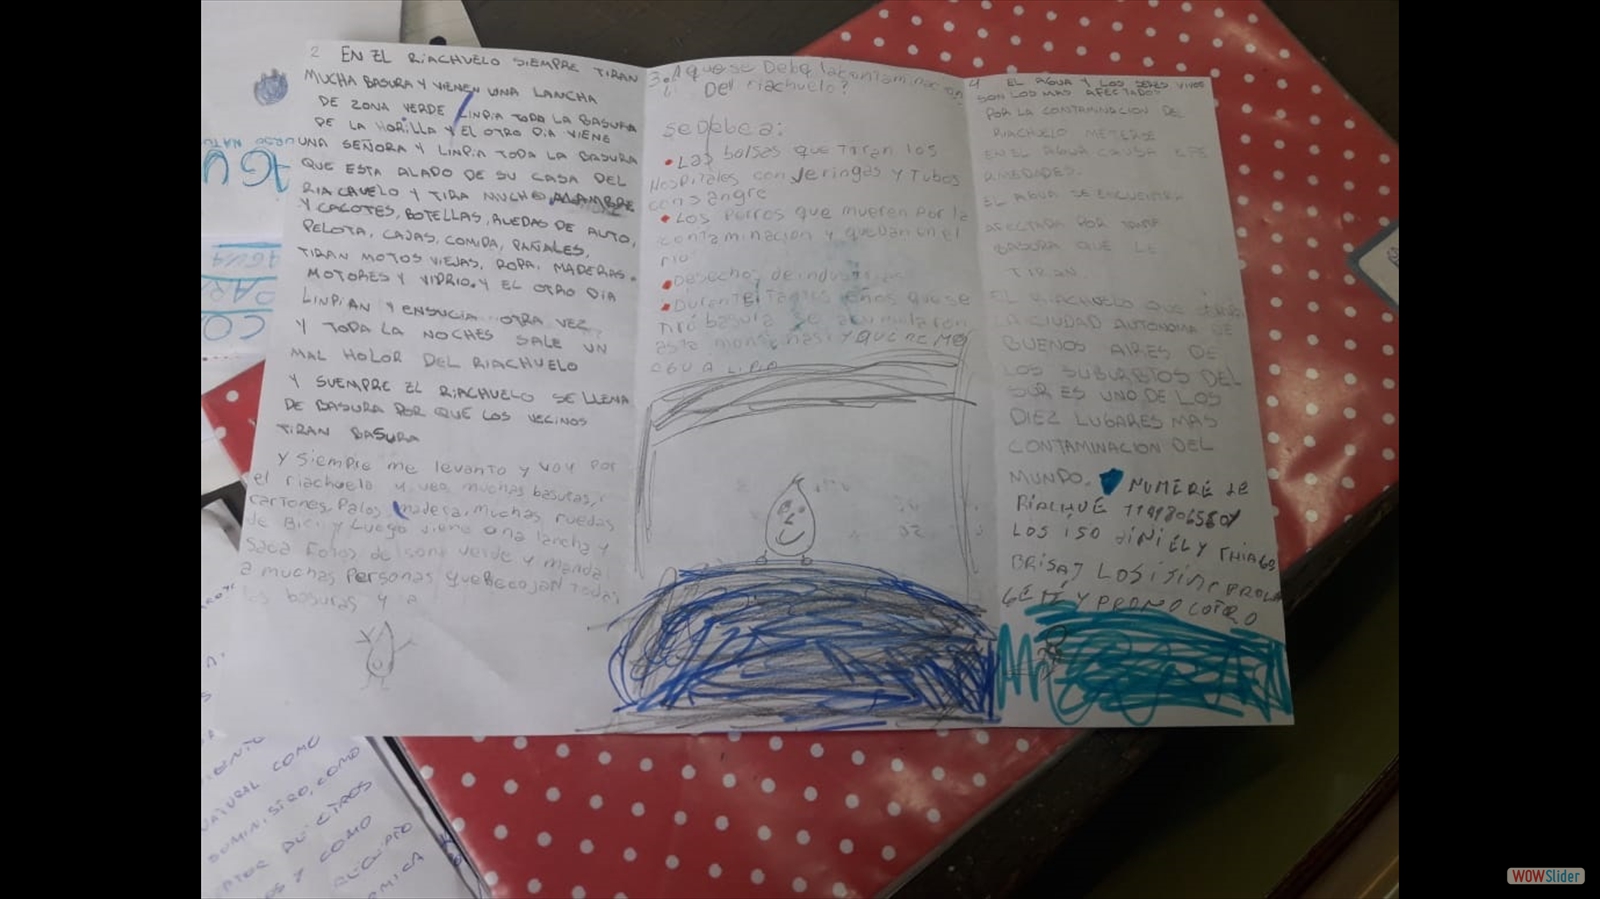 2 EN EL RIACHUELO SIEMPRE TIRAN
MUCHA BASURA Y VIENEN UNA LANCHA
DE ZONA VERDE LINPIA TODA LA BASURA
DE LA HORILLA Y EL OTRO DIA VIENE
UNA SEÑORA Y LINPIA TODA LA BASURA
QUE ESTA ALADO DE SU CASA DEL
RIACAVELO Y TIRA MUCHO ALAMBRE
Y CACOTES, BOTELLAS, RUEDAS DE AUTO,
PELOTA, CAJAS, COMIDA, PAÑALES,
TIRAN MOTOS VIEJAS, ROPA, MADERAS.
MOTORES Y VIDRIO. Y EL OTRO DIA
LINPIAN Y ENSUCIA OTRA VEZ
Y TODA LA NOCHES SALE UN
MAL HOLOR DEL RIACHUELO
Y SUEMPRE EL RIACHUELO SE LLENA
DE BASURA POR QUE LOS VECINOS
TIRAN BASURA
Y siempre me levanto y voy por
el riachuelo y veo muchas basuras,
cartones, Palos madera, muchas ruedas
de Bici y Luego viene una lancha y
Saca Fotos de sona verde y manda
a muchas Personas que Recojan todas
las basuras y a
3. A que se Debe la contaminacion
Del riachuelo?
se debe a:
• Las bolsas que tiran los
Hospitales con Jeringas y Tubos
con sangre
• Los Perros que mueren por la
contaminacion y quedan en el
rio
• Desechos de industrias
• Durante Tantos años que se
tiró basura se acumularon
asta montañas Y QUEREMO
AGUA LIPIA
4 EL AGUA Y LOS SERES VIVOS
SON LOS MAS AFECTADOS
POR LA CONTAMINACION DEL
RIACHUELO METERSE
EN EL AGUA CAUSA EFE
RMEDADES.
EL AGUA SE ENCUENTRA
AFECTADA POR TODA
BASURA QUE LE
TIRAN.
EL RIACHUELO QUE
LA CIUDAD AUTONOMA DE
BUENOS AIRES DE
LOS SUBURBIOS DEL
SUR ES UNO DE LOS
DIEZ LUGARES MAS
CONTAMINACION DEL
MUNDO. NUMERE
Y
LOS Y THIAGO
BRISA
Y
AGUA
AGUA
PAR
CO
NATURAL COMO
COMO
Y COMO
WOWSlider